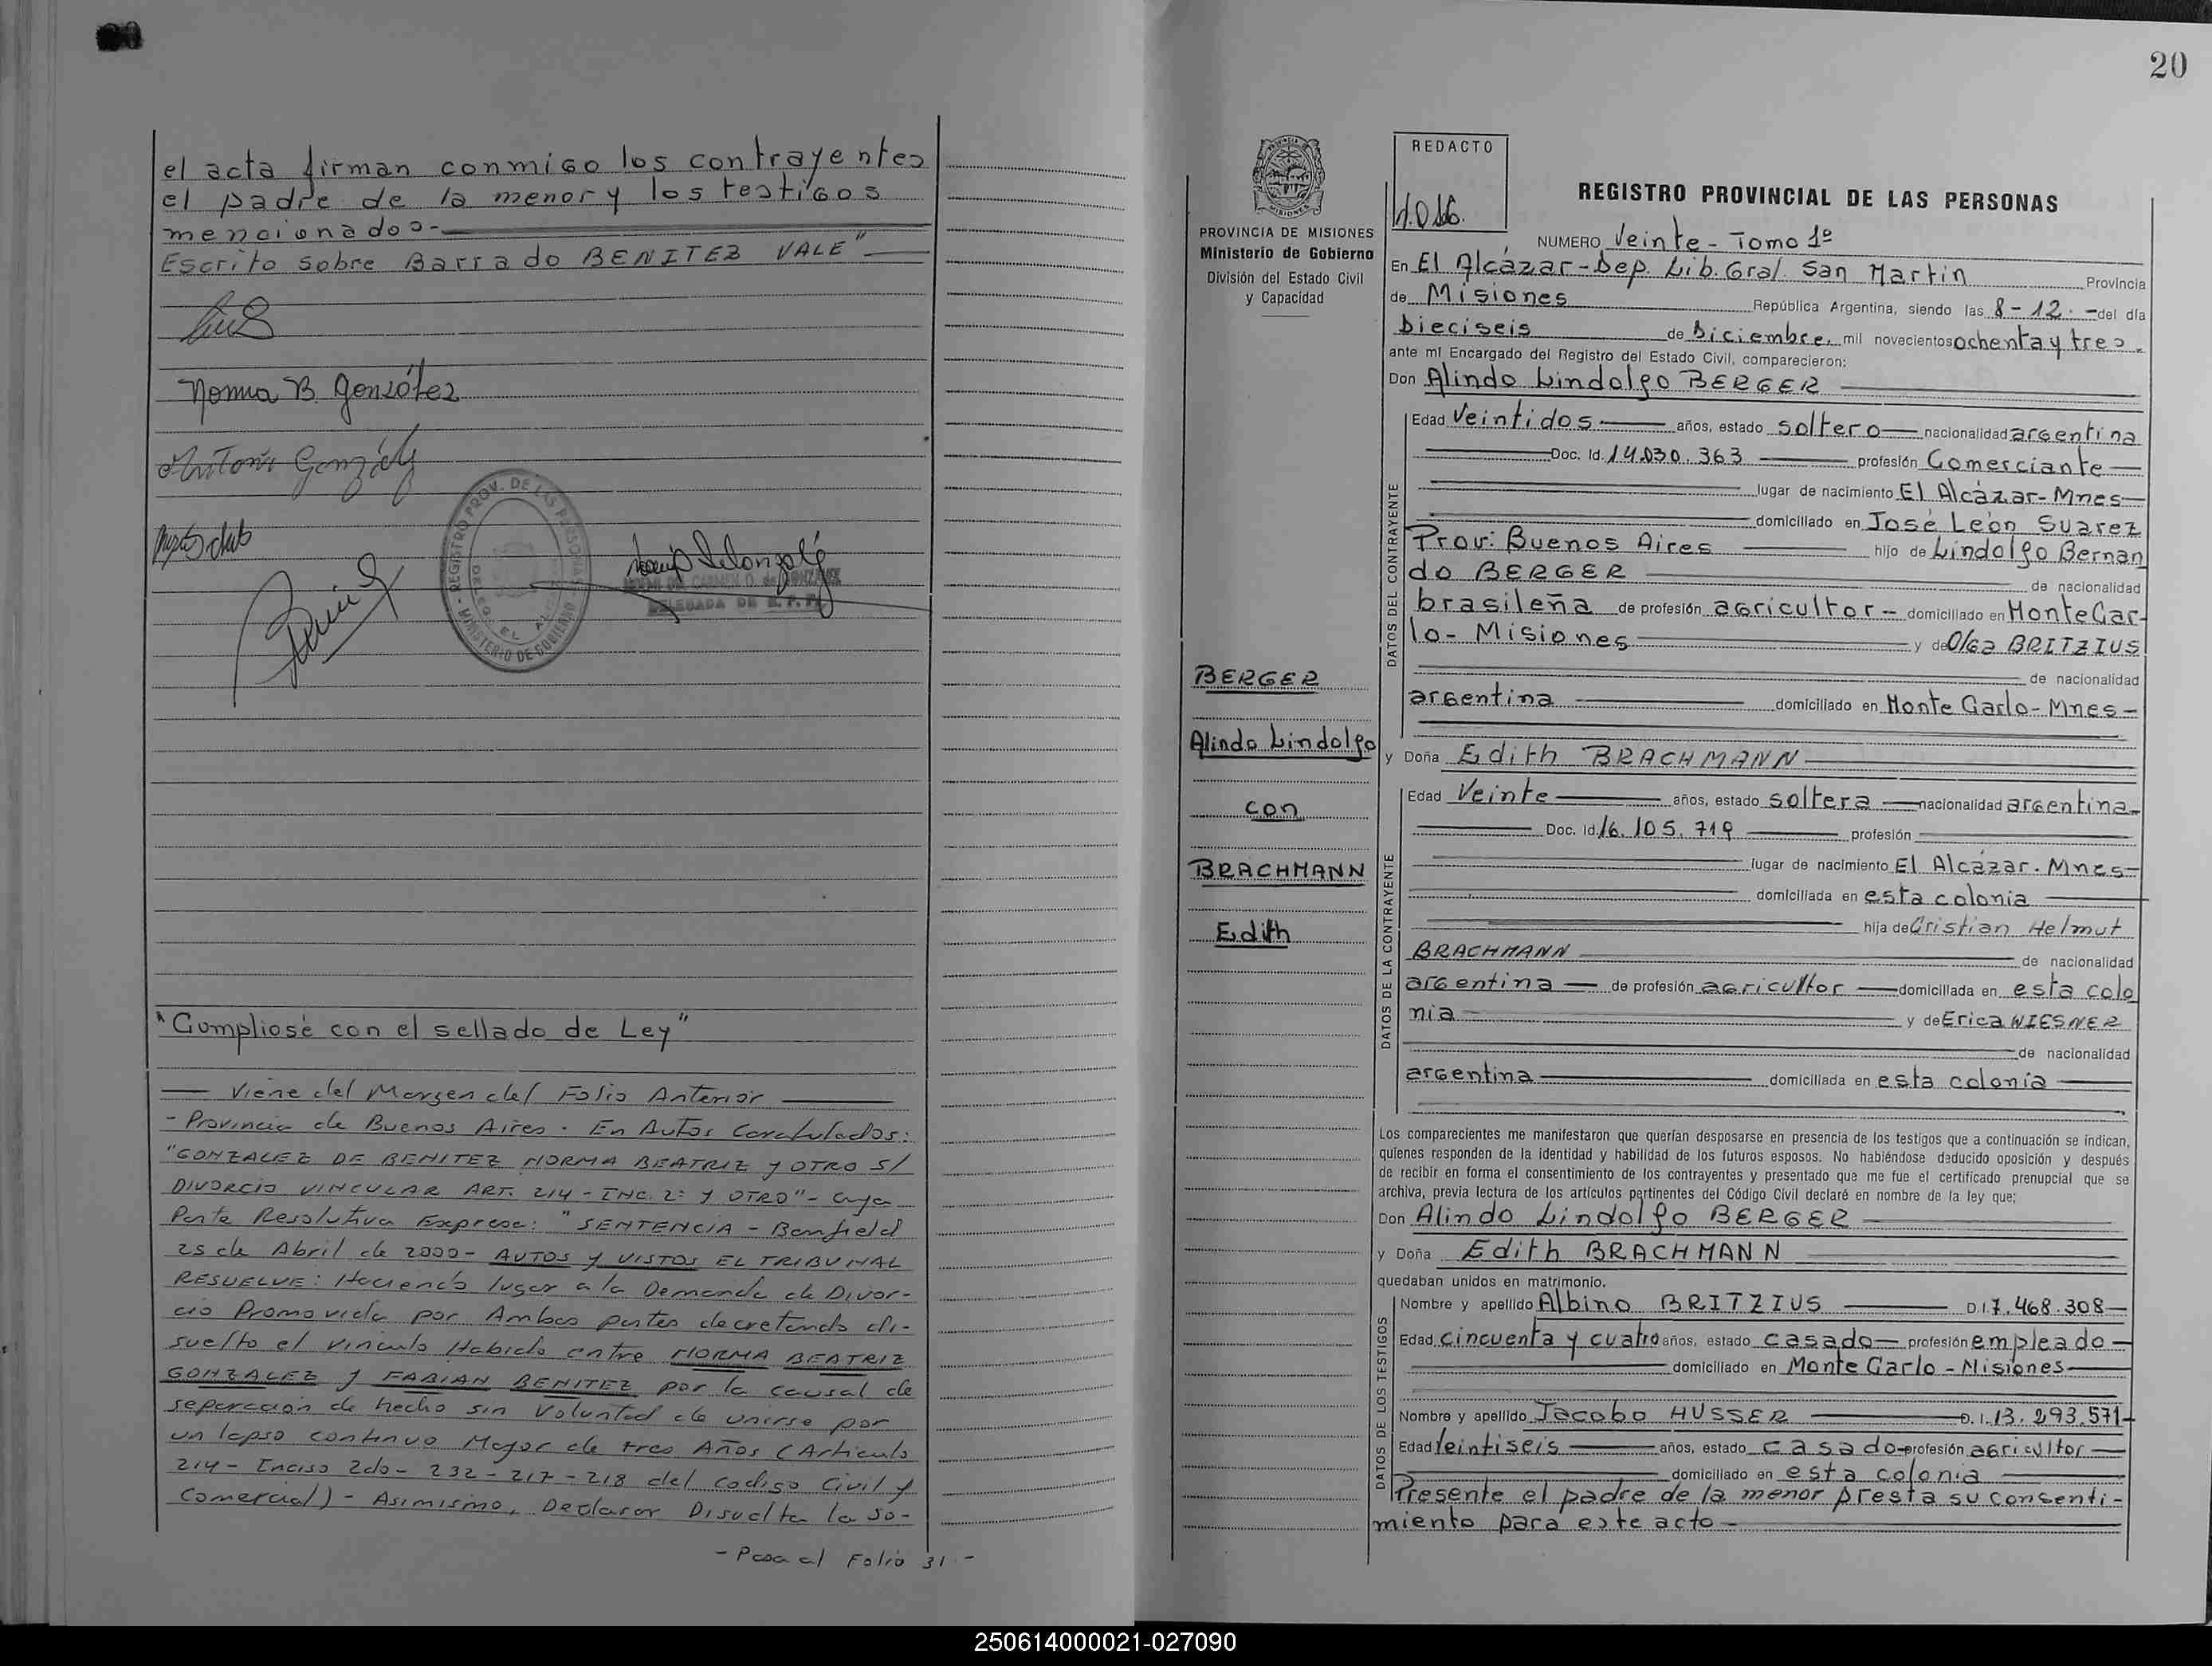 el acta firman conmigo los contrayentes
el padre de la menor y los testigos
mencionados-
Escrito sobre Barrado BENITEZ VALE"
Norma B. González
Antonio González
REGISTRO PROV. DE LAS PERSONAS
MINISTERIO DE GOBIERNO
DELEGADA DE R. P. P.
"Cumpliosé con el sellado de Ley"
Viene del Margen del Folio Anterior
- Provincia de Buenos Aires. En Autos Caratulados:
"GONZALEZ DE BENITEZ NORMA BEATRIZ y OTRO S/
DIVORCIO VINCULAR ART. 214 - INC. 2º y OTRO" - cuya
Parte Resolutiva Expresa: "SENTENCIA - Banfield
25 de Abril de 2000 - AUTOS y VISTOS EL TRIBUNAL
RESUELVE: Haciendo lugar a la Demanda de Divor-
cio Promovida por Ambas partes decretando di-
suelto el vinculo Habido entre NORMA BEATRIZ
GONZALEZ y FABIAN BENITEZ por la causal de
separacion de hecho sin Voluntad de unirse por
un lapso continuo Mayor de tres Años (Articulo
214 - Inciso 2do - 232 - 217 - 218 del Codigo Civil y
Comercial) - Asimismo, Declarar Disuelta la So-
- Pasa al Folio 31 -
20
PROVINCIA DE MISIONES
Ministerio de Gobierno
División del Estado Civil
y Capacidad
BERGER
Alindo Lindolfo
con
BRACHMANN
Edith
REDACTO
REGISTRO PROVINCIAL DE LAS PERSONAS
NUMERO Veinte - Tomo 1º
En El Alcázar - Dep. Lib. Gral. San Martin Provincia
de Misiones República Argentina, siendo las 8 - 12. - del día
Dieciseis de Diciembre, mil novecientos ochenta y tres.
ante mí Encargado del Registro del Estado Civil, comparecieron:
Don Alindo Lindolfo BERGER
DATOS DEL CONTRAYENTE
Edad Veintidos años, estado soltero nacionalidad argentina
Doc. Id. 14.030.363 profesión Comerciante
lugar de nacimiento El Alcázar - Mnes
domiciliado en José León Suarez
Prov: Buenos Aires hijo de Lindolfo Bernan
do BERGER de nacionalidad
brasileña de profesión agricultor - domiciliado en Monte Car-
lo - Misiones y de Olga BRITZIUS
de nacionalidad
argentina domiciliado en Monte Carlo - Mnes -
y Doña Edith BRACHMANN
DATOS DE LA CONTRAYENTE
Edad Veinte años, estado soltera nacionalidad argentina
Doc. Id. 16.105.719 profesión
lugar de nacimiento El Alcázar. Mnes
domiciliada en esta colonia
hija de Cristian Helmut
BRACHMANN de nacionalidad
argentina de profesión agricultor domiciliada en esta colo
nia y de Erica WIESNER
de nacionalidad
argentina domiciliada en esta colonia
Los comparecientes me manifestaron que querían desposarse en presencia de los testigos que a continuación se indican,
quienes responden de la identidad y habilidad de los futuros esposos. No habiéndose deducido oposición y después
de recibir en forma el consentimiento de los contrayentes y presentado que me fue el certificado prenupcial que se
archiva, previa lectura de los artículos pertinentes del Código Civil declaré en nombre de la ley que;
Don Alindo Lindolfo BERGER
y Doña Edith BRACHMANN
quedaban unidos en matrimonio.
DATOS DE LOS TESTIGOS
Nombre y apellido Albino BRITZIUS D.I. 7.468.308
Edad cincuenta y cuatro años, estado casado profesión empleado
domiciliado en Monte Carlo - Misiones
Nombre y apellido Jacobo HUSSER D.I. 13.293.571
Edad Veintiseis años, estado casado profesión agricultor
domiciliado en esta colonia
Presente el padre de la menor presta su consenti-
miento para este acto -
250614000021-027090